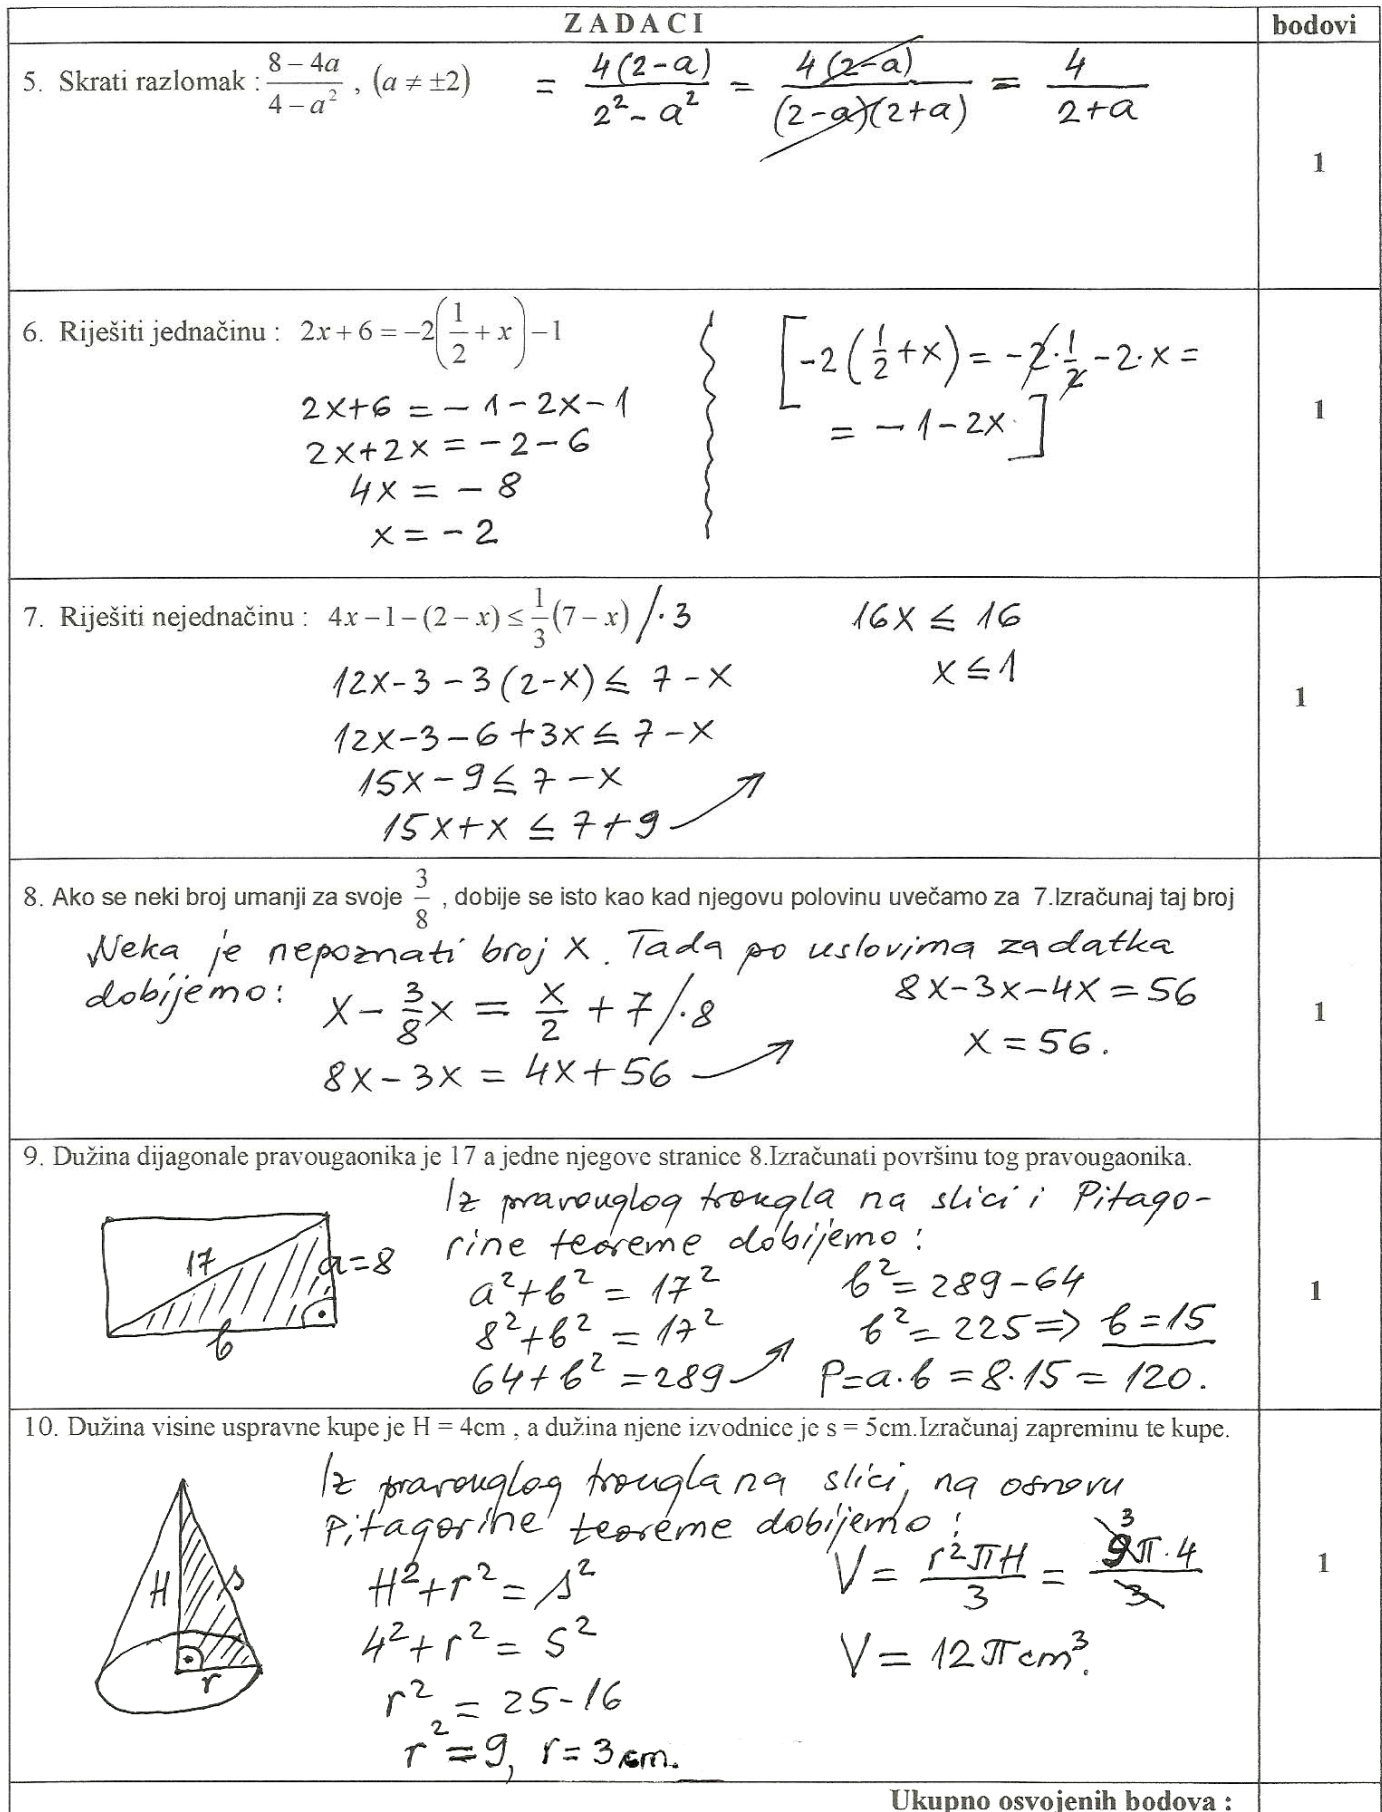 ZADACI bodovi
5. Skrati razlomak : (8 − 4a)/(4 − a²) , (a ≠ ±2) = 4(2-a)/(2² - a²) = 4(2-a)/((2-a)(2+a)) = 4/(2+a)
1
6. Riješiti jednačinu : 2x + 6 = −2(1/2 + x) − 1 [-2(1/2 + x) = -2·1/2 - 2·x =
= -1-2x]
2x+6 = -1-2x-1
2x+2x = -2-6
4x = -8
x = -2
1
7. Riješiti nejednačinu : 4x − 1 − (2 − x) ≤ 1/3(7 − x) /·3
12x-3-3(2-x) ≤ 7-x
12x-3-6+3x ≤ 7-x
15x-9 ≤ 7-x
15x+x ≤ 7+9
16x ≤ 16
x ≤ 1
1
8. Ako se neki broj umanji za svoje 3/8 , dobije se isto kao kad njegovu polovinu uvečamo za 7.Izračunaj taj broj
Neka je nepoznati broj x. Tada po uslovima zadatka
dobijemo: x - 3/8x = x/2 + 7 /·8
8x-3x = 4x+56
8x-3x-4x = 56
x = 56.
1
9. Dužina dijagonale pravougaonika je 17 a jedne njegove stranice 8.Izračunati površinu tog pravougaonika.
17
a=8
b
Iz pravouglog trougla na slici i Pitago-
rine teoreme dobijemo:
a²+b² = 17²
8²+b² = 17²
64+b² = 289
b² = 289-64
b² = 225 => b = 15
P=a·b = 8·15 = 120.
1
10. Dužina visine uspravne kupe je H = 4cm , a dužina njene izvodnice je s = 5cm.Izračunaj zapreminu te kupe.
H
s
r
Iz pravouglog trougla na slici, na osnovu
Pitagorine teoreme dobijemo:
H²+r² = s²
4²+r² = 5²
r² = 25-16
r² = 9, r = 3cm.
V = r²πH/3 = 9π·4/3 3
V = 12π cm³.
1
Ukupno osvojenih bodova :